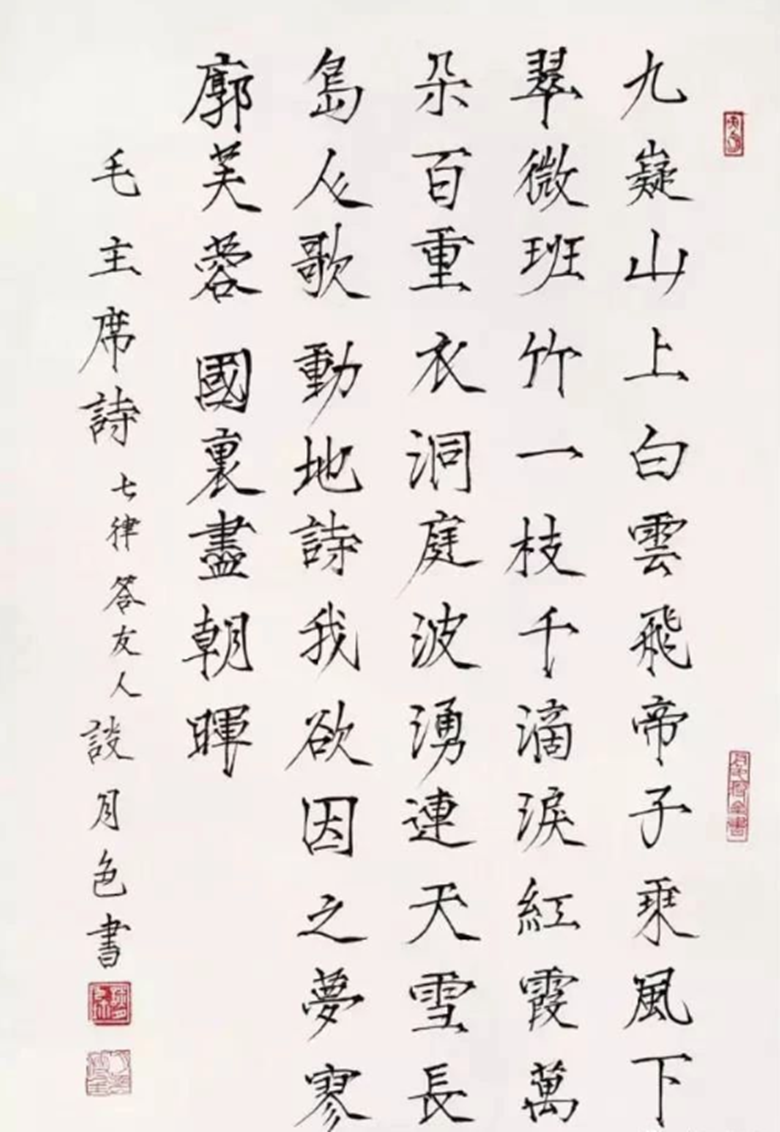 九嶷山上白雲飛帝子乘風下
翠微班竹一枝千滴淚紅霞萬
朵百重衣洞庭波湧連天雪長
島人歌動地詩我欲因之夢寥
廓芙蓉國裏盡朝暉
毛主席詩七律答友人談月色書